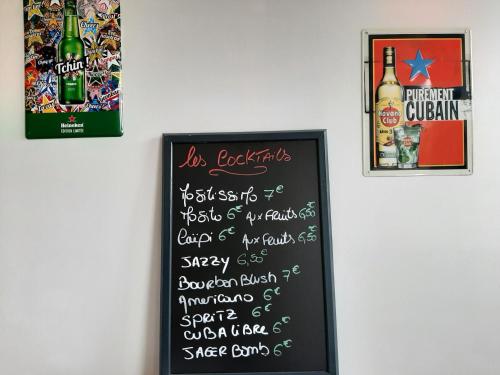 Tchin!
Heineken
EDITION LIMITÉE
PUREMENT
CUBAIN
Havana
Club
Les COCKTAILS
Mojitissimo 7€
Mojito 6€ Aux Fruits 6,50€
Caïpi 6€ Aux Fruits 6,50€
JAZZY 6,50€
Bourbon Blush 7€
Americano 6€
SPRITZ 6€
CUBA LIBRE 6€
JAGER Bomb 6€